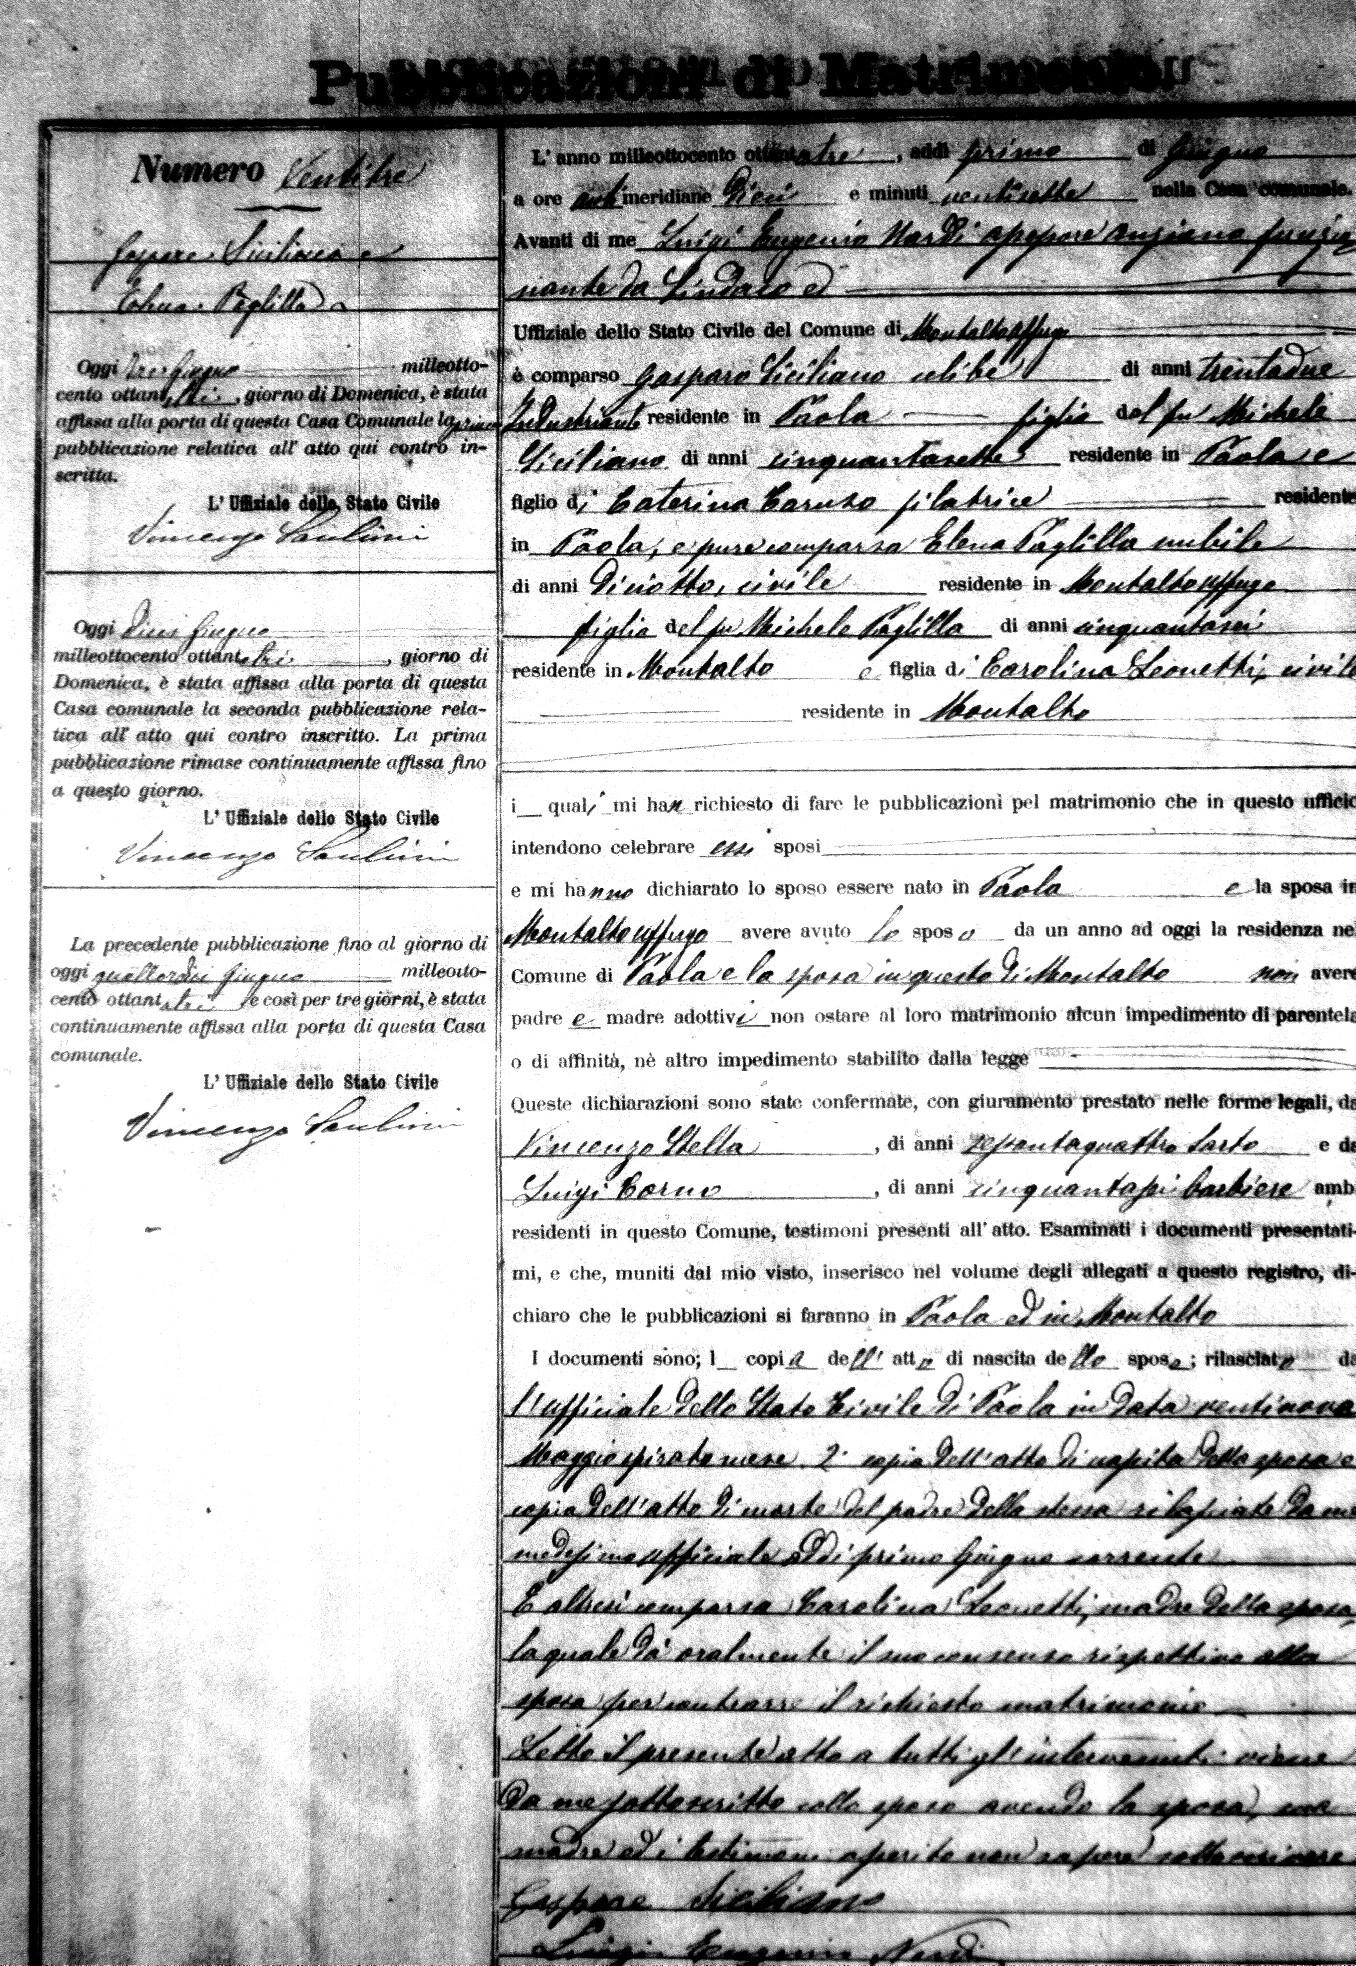 Pubblicazioni di Matrimonio
Numero Ventitre
Gaspare Siciliano e
Elena Paglilla
Oggi tre Giugno milleotto-
cento ottantatrè, giorno di Domenica, è stata
affissa alla porta di questa Casa Comunale la prima
pubblicazione relativa all' atto qui contro in-
scritta.
L' Uffiziale dello Stato Civile
Vincenzo
Oggi dieci Giugno
milleottocento ottantatrè, giorno di
Domenica, è stata affissa alla porta di questa
Casa comunale la seconda pubblicazione rela-
tiva all' atto qui contro inscritto. La prima
pubblicazione rimase continuamente affissa fino
a questo giorno.
L' Uffiziale dello Stato Civile
Vincenzo
La precedente pubblicazione fino al giorno di
oggi quattordici Giugno milleotto-
cento ottantatrè e così per tre giorni, è stata
continuamente affissa alla porta di questa Casa
comunale.
L' Uffiziale dello Stato Civile
Vincenzo
L' anno milleottocento ottantatre, addì primo di Giugno
a ore antimeridiane Dieci e minuti ventisette nella Casa comunale.
Avanti di me Luigi Eugenio Nardi assessore anziano funzio
nante da Sindaco ed
Uffiziale dello Stato Civile del Comune di Montalto Uffugo
è comparso Gasparo Siciliano celibe di anni trentadue
Industriante residente in Paola figlio del fu Michele
Siciliano di anni cinquantasette residente in Paola e
figlio di Caterina Caruso filatrice residente
in Paola, e pure comparsa Elena Paglilla nubile
di anni Diciotto, civile residente in Montalto Uffugo
figlia del fu Michele Paglilla di anni cinquantasei
residente in Montalto e figlia di Carolina Leonetti, civile
residente in Montalto
i quali mi han richiesto di fare le pubblicazioni pel matrimonio che in questo ufficio
intendono celebrare essi sposi
e mi hanno dichiarato lo sposo essere nato in Paola e la sposa in
Montalto Uffugo avere avuto lo sposo da un anno ad oggi la residenza nel
Comune di Paola e la sposa in questo di Montalto non avere
padre e madre adottivi non ostare al loro matrimonio alcun impedimento di parentela
o di affinità, nè altro impedimento stabilito dalla legge
Queste dichiarazioni sono state confermate, con giuramento prestato nelle forme legali, da
Vincenzo Stella, di anni sessantaquattro Sarto e da
Luigi Corno, di anni cinquantasei barbiere amb
residenti in questo Comune, testimoni presenti all' atto. Esaminati i documenti presentati-
mi, e che, muniti dal mio visto, inserisco nel volume degli allegati a questo registro, di-
chiaro che le pubblicazioni si faranno in Paola ed in Montalto
I documenti sono; 1 copia dell' atto di nascita dello sposo; rilasciato da
l'ufficiale dello Stato Civile di Paola in data ventinove
Maggio spirato mese. 2° copia dell' atto di nascita della sposa e
copia dell' atto di morte del padre della stessa rilasciate da me
medesimo ufficiale addì primo Giugno corrente
È altresì comparsa Carolina Leonetti, madre della sposa,
la quale dà oralmente il suo consenso rispettivo alla
sposa per contrarre il richiesto matrimonio
Letto il presente atto a tutti gl' intervenuti viene
da me sottoscritto collo sposo avendo la sposa, sua
madre ed i testimoni asserito non sapere sottoscrivere
Gaspare Siciliano
Luigi Eugenio Nardi